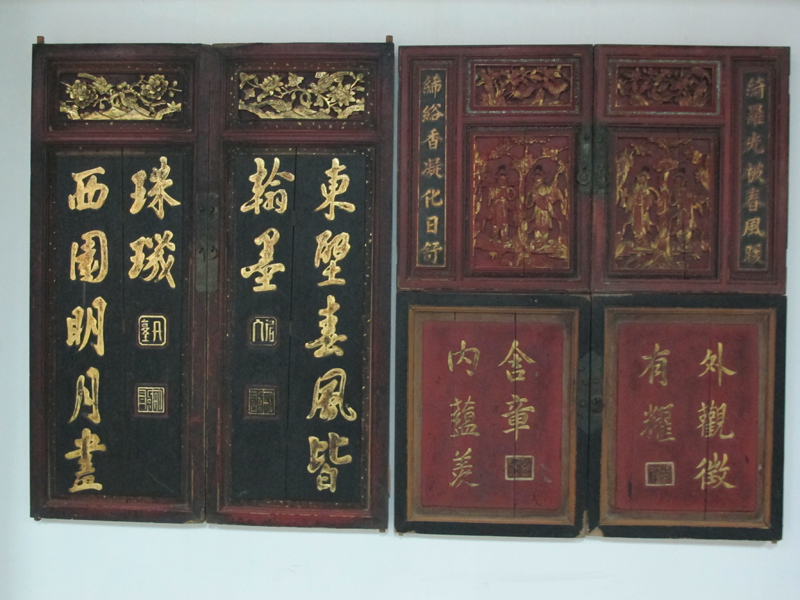 東壁春風皆
翰墨
西園明月盡
珠璣
綺羅光被春風暖
絺綌香凝化日舒
外觀徵
有耀
內蘊羨
含章